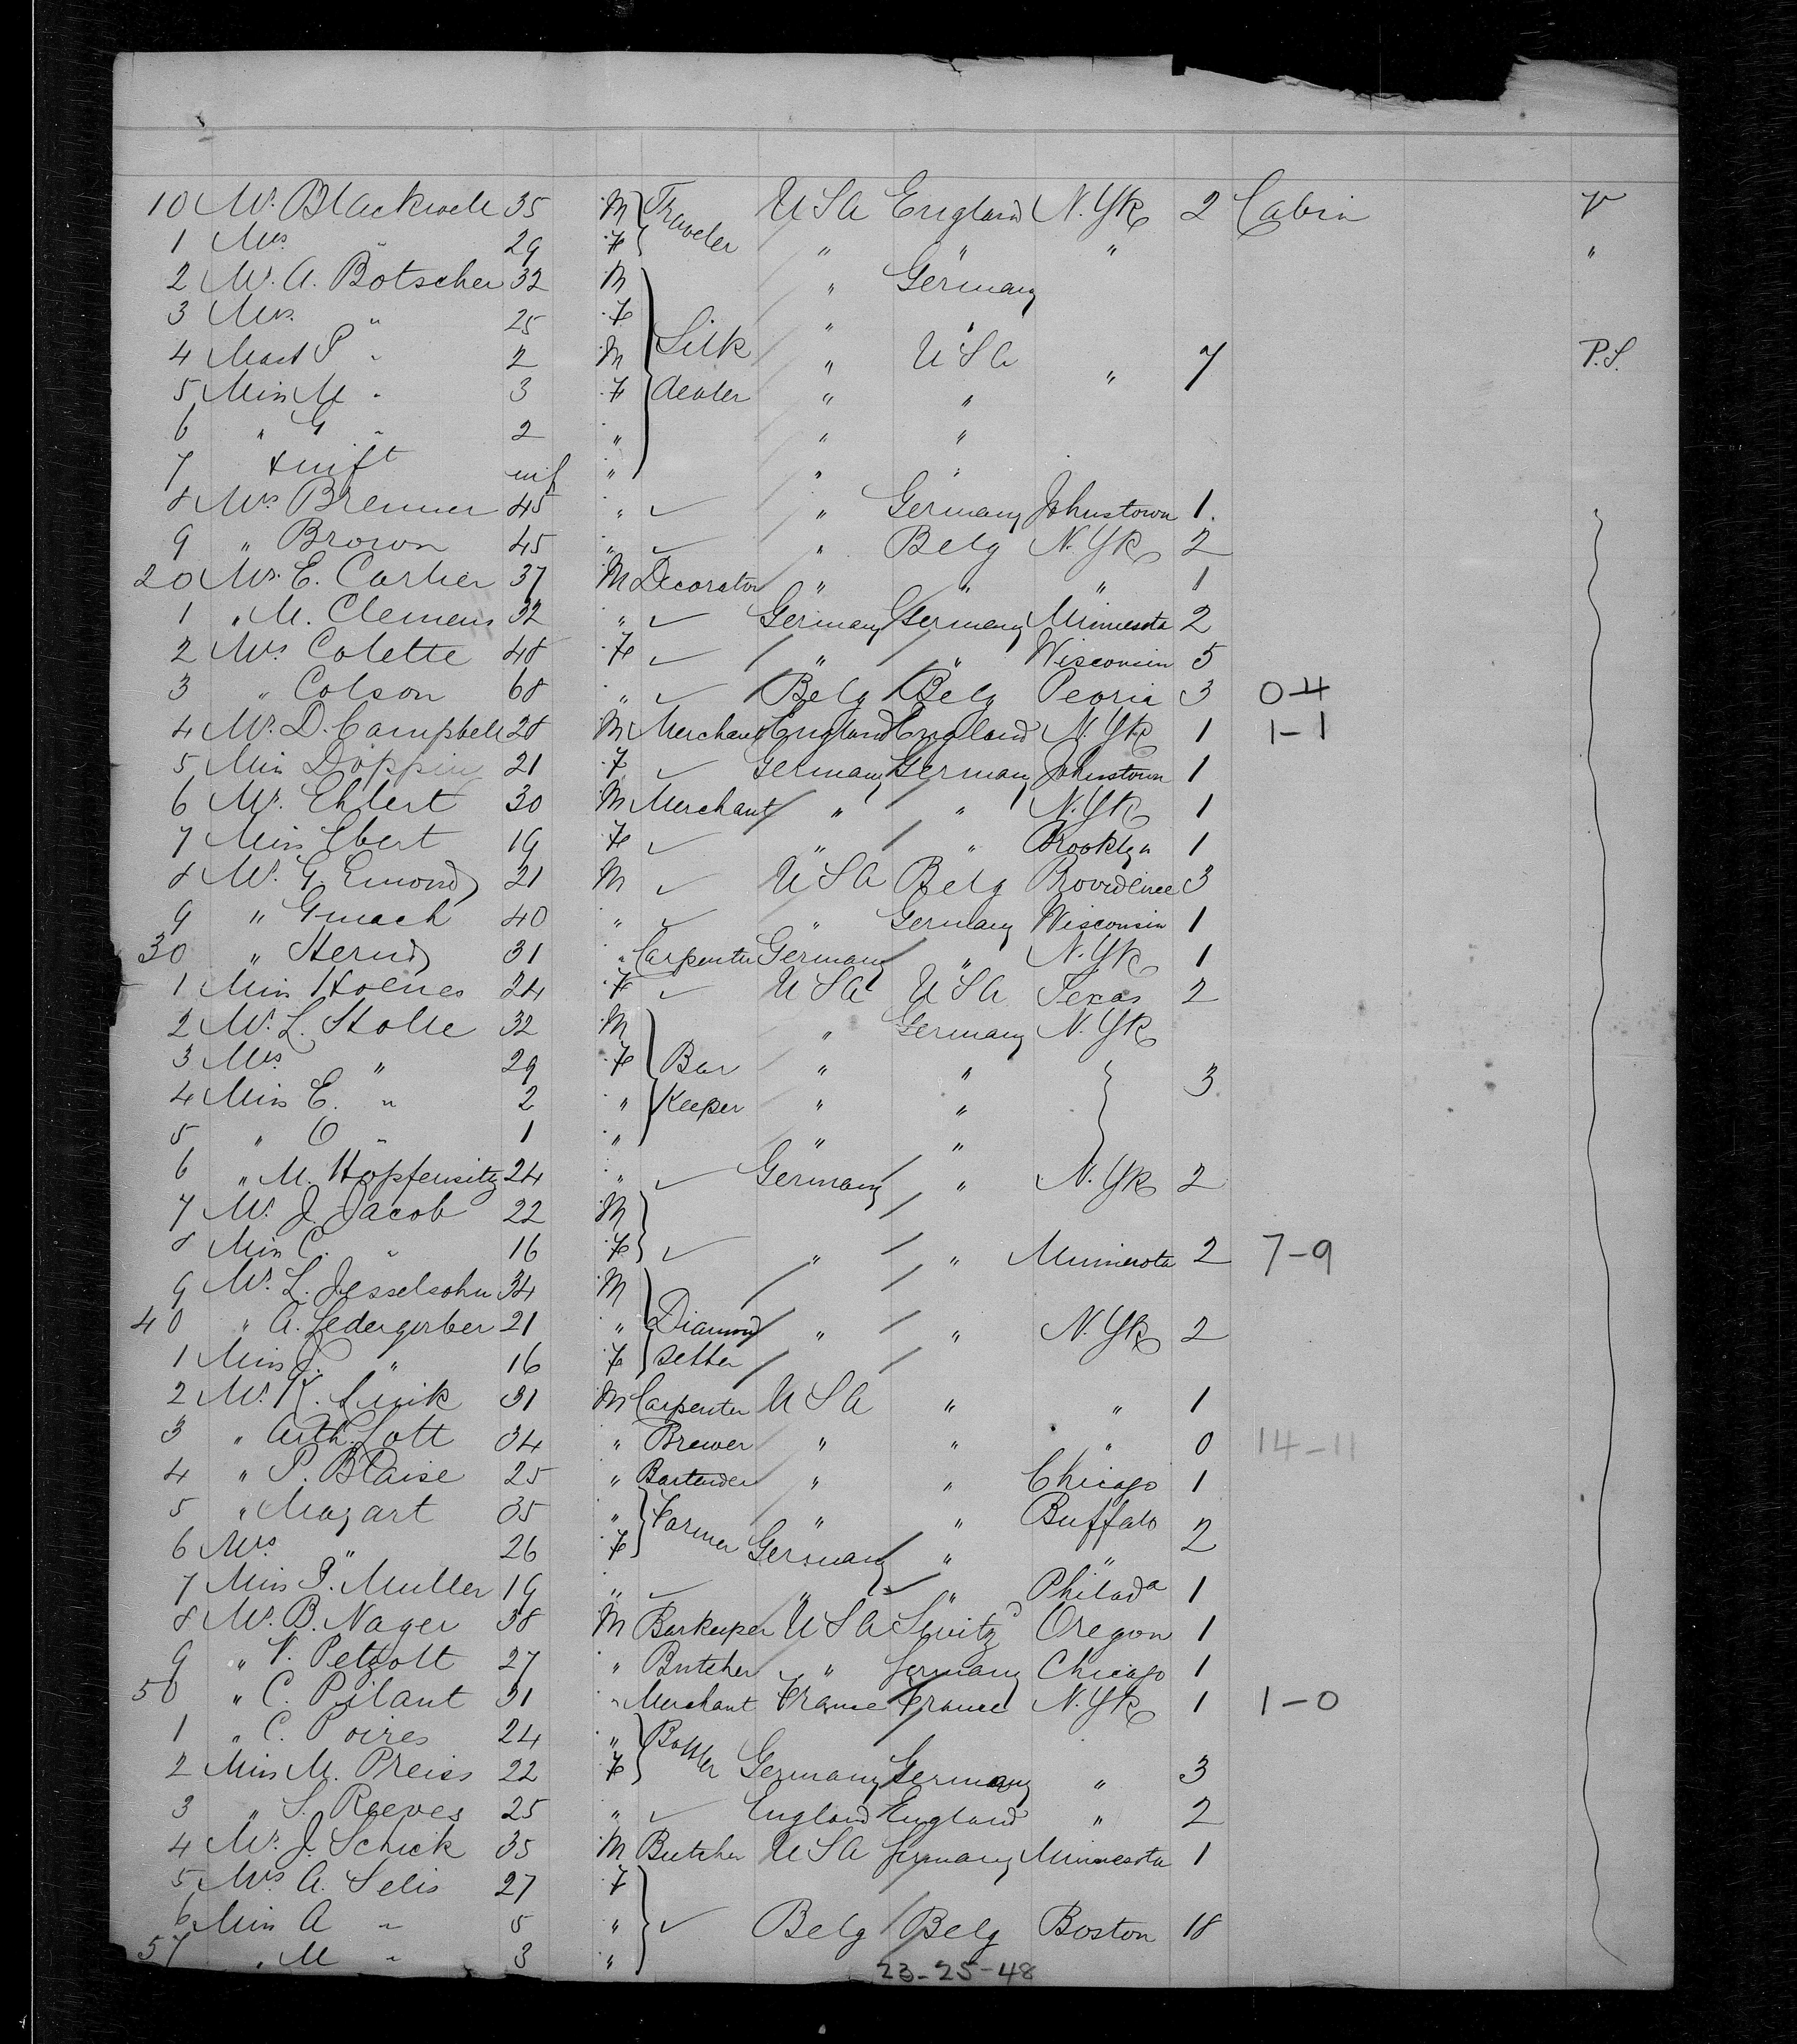 10 Mr. Blackwell 35 M Traveler USA England N.Yk 2 Cabin
1 Mrs " 29 F " " "  "
2 Mr. A. Botscher 32 M " Germany
3 Mrs. " 25 F Silk " "
4 Mast P " 2 M " USA 7 P.S.
5 Miss M " 3 F dealer " " "
6 " G " 2 " " "
7 inf " " "
8 Mrs Brenner 45 " ✓ " Germany Johnstown 1.
9 " Brown 45 " ✓ " Belg N.Yk 2
20 Mr. E. Cartier 37 M Decorator " " " 1
1 " M. Clemens 32 " ✓ Germany Germany Minnesota 2
2 Mrs Colette 48 F ✓ " " Wisconsin 5
3 " Colson 68 " ✓ Belg Belg Peoria 3 0-4
4 Mr. D. Campbell 28 M Merchant England England N.Yk 1 1-1
5 Miss Dopping 21 F ✓ Germany Germany Johnstown 1
6 Mr. Ehlert 30 M Merchant " " N.Yk 1
7 Miss Ebert 19 F ✓ " " Brooklyn 1
8 Mr. G. Emond 21 M ✓ USA Belg Providence 3
9 " Gmach 40 " ✓ " Germany Wisconsin 1
30 " Hernd 31 " Carpenter Germany " N.Yk 1
1 Miss Hoenes 24 F ✓ USA USA Texas 2
2 Mr. L. Holle 32 M " Germany N.Yk
3 Mrs " 29 F Bar " " 3
4 Miss E. " 2 " Keeper " "
5 " O " 1 " " "
6 " M. Hopfensitz 24 " ✓ Germany " N.Yk 2
7 Mr. J. Jacob 22 M
8 Miss C. " 16 F ✓ " " Minnesota 2 7-9
9 Mr. L. Jesselsohn 34 M
40 " A. Ledergerber 21 " Diamond " " N.Yk 2
1 Miss J. " 16 F setter
2 Mr. K. Link 31 M Carpenter USA " " 1
3 " Arth. Lott 34 " Brewer " " " 0 14-11
4 " P. Blaise 25 " Bartender " " Chicago 1
5 " Mozart 35 " Farmer " " Buffalo 2
6 Mrs " 26 F Germany " "
7 Miss P. Muller 19 " ✓ " " Philada 1
8 Mr. B. Nager 38 M Barkeeper USA Switz Oregon 1
9 " V. Petzolt 27 " Butcher " Germany Chicago 1
50 " C. Pilant 31 " Merchant France France N.Yk 1 1-0
1 " C. Poires 24 " Bottler
2 Miss M. Preiss 22 F Germany Germany " 3
3 " S. Reeves 25 " ✓ England England " 2
4 Mr. J. Schick 35 M Butcher USA Germany Minnesota 1
5 Mrs A. Selis 27 F
6 Miss A " 5 " ✓ Belg Belg Boston 18
57 " M " 3 "
23-25-48